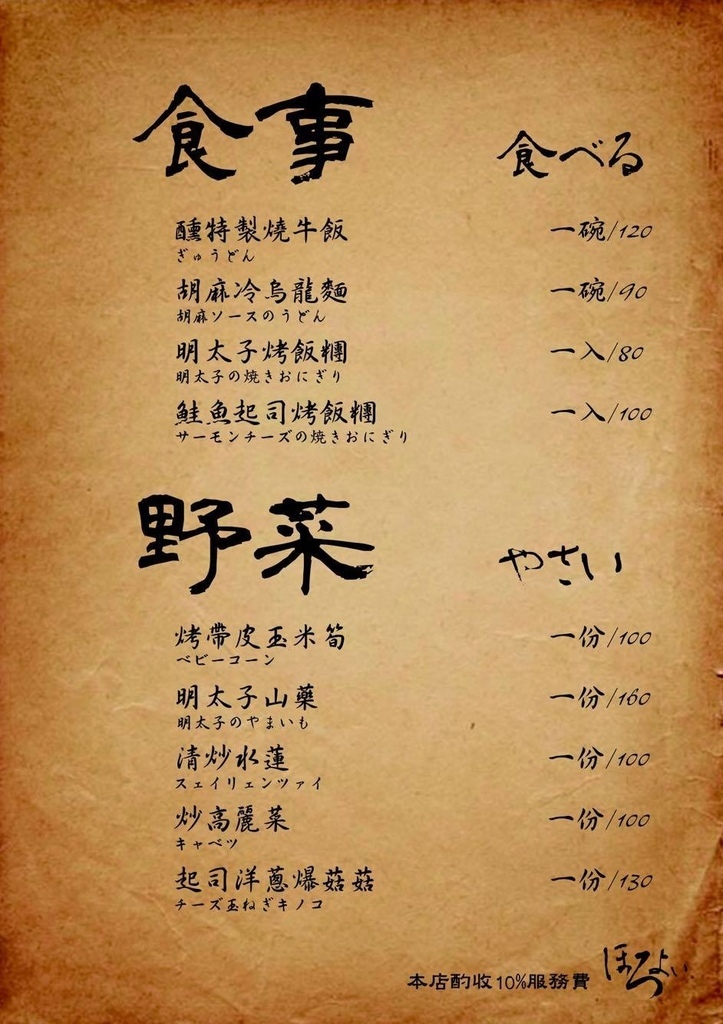 食事 食べる
醺特製燒牛飯 一碗/120
ぎゅうどん
胡麻冷烏龍麵 一碗/90
胡麻ソースのうどん
明太子烤飯糰 一入/80
明太子の焼きおにぎり
鮭魚起司烤飯糰 一入/100
サーモンチーズの焼きおにぎり
野菜 やさい
烤帶皮玉米筍 一份/100
ベビーコーン
明太子山藥 一份/160
明太子のやまいも
清炒水蓮 一份/100
スェイリェンツァイ
炒高麗菜 一份/100
キャベツ
起司洋蔥爆菇菇 一份/130
チーズ玉ねぎキノコ
本店酌收10%服務費 ほろよい